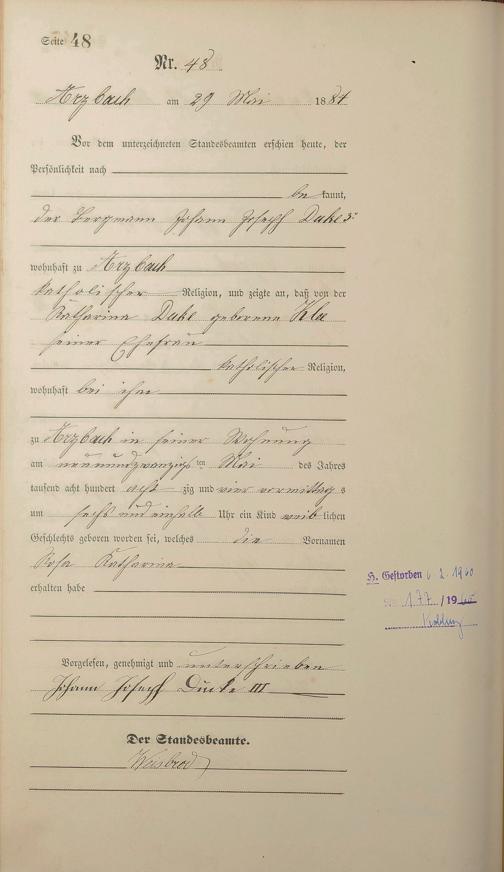 Seite 48
Nr. 48
Arzbach am 29 Mai 1884
Vor dem unterzeichneten Standesbeamten erschien heute, der
Persönlichkeit nach
bekannt,
der Bergmann Johann Joseph
wohnhaft zu Arzbach
katholischer Religion, und zeigte an, daß von der
Katharina geborene
seiner Ehefrau
katholischer Religion,
wohnhaft bei ihm
zu Arzbach in seiner Wohnung
am neunundzwanzigs ten Mai des Jahres
tausend acht hundert acht zig und vier vormittag s
um sechs und einhalb Uhr ein Kind weib lichen
Geschlechts geboren worden sei, welches die Vornamen
Rosa Katharina
erhalten habe
H. Gestorben 6 2. 1960
177 /1960
Koblenz
Vorgelesen, genehmigt und unterschrieben
Johann Joseph III
Der Standesbeamte.
Weisbrod